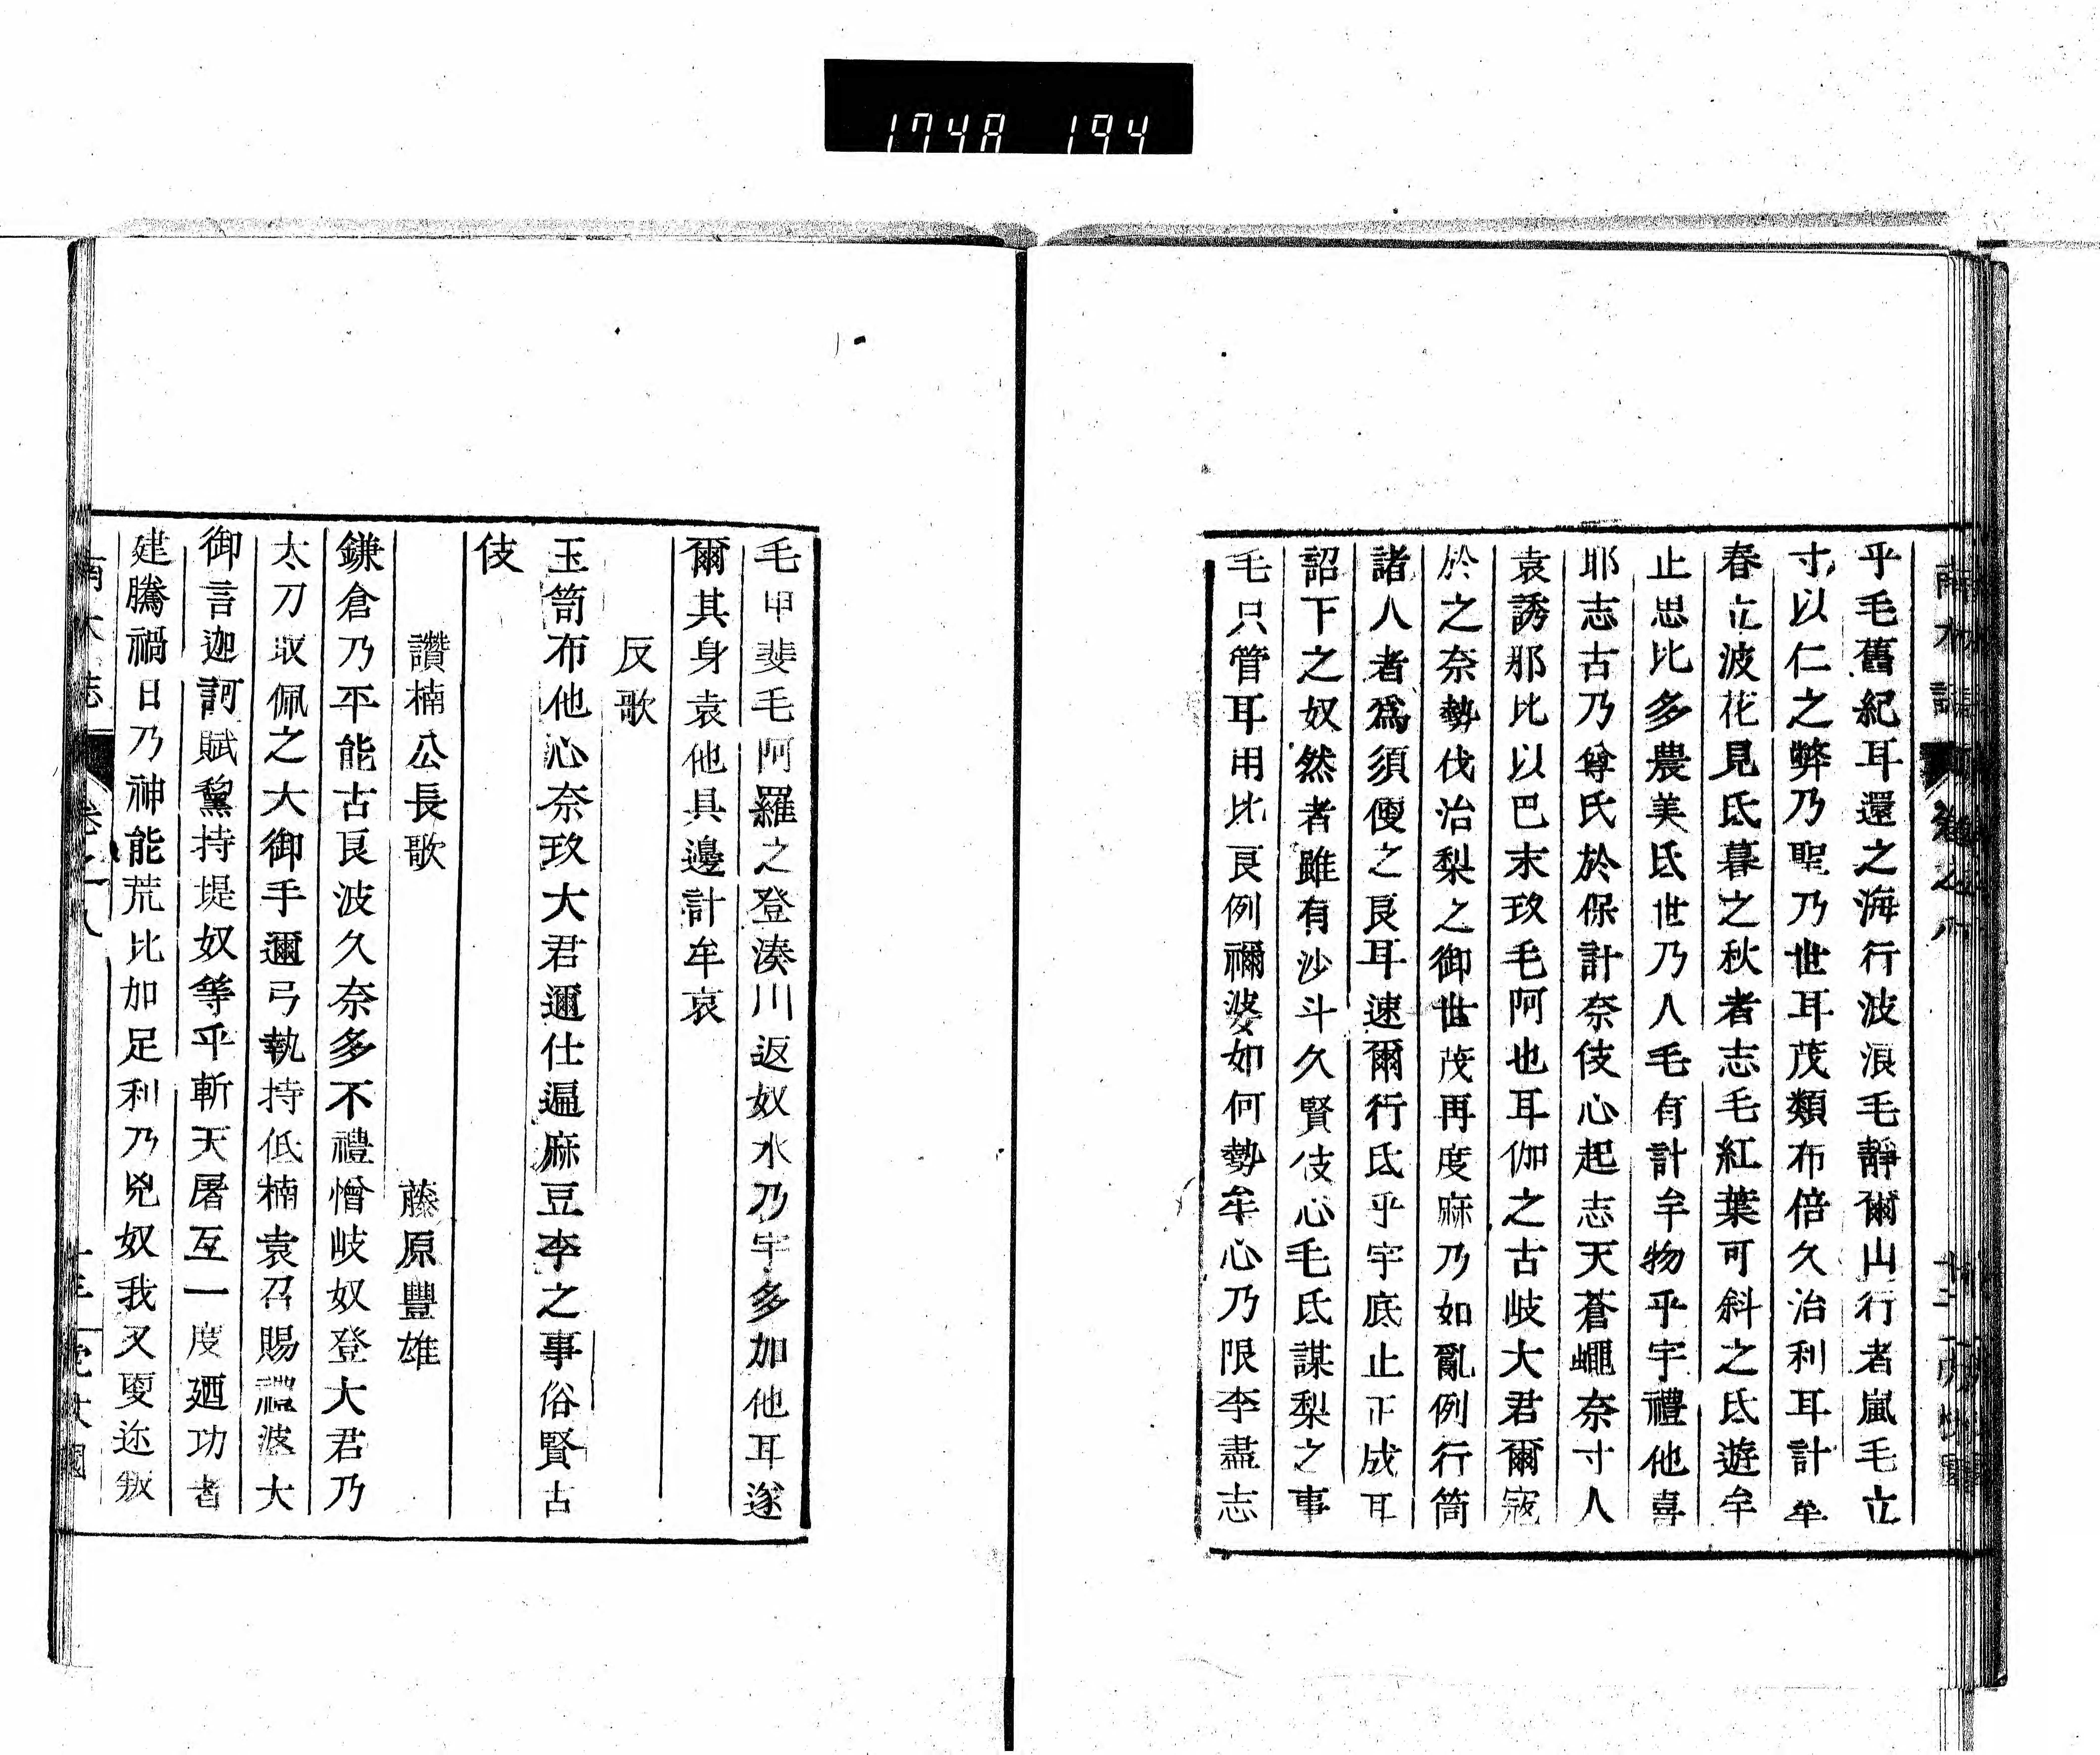 1748 194
乎毛舊紀耳還之海行波浪毛靜爾山行者嵐毛立
寸以仁之弊乃聖乃世耳茂類布倍久治利耳計牟
春立波花見氐暮之秋者志毛紅葉可斜之氐遊牟
止思比多農美氐世乃人毛有計牟物乎宇禮他喜
耶志古乃尊氏於保計奈伎心起志天蒼蠅奈寸人
袁誘耶比以巴末玖毛阿也耳伽之古岐大君爾寇
於之奈勢伐治梨之御世茂再度麻乃如亂例行筒
諸人者爲須便之良耳速爾行氐乎宇底止正成耳
詔下之奴然者雖有沙斗久賢伎心毛氐謀梨之事
毛只管耳用比良例禰婆如何勢牟心乃限李盡志
毛甲斐毛阿羅之登湊川返奴水乃宇多加他耳遂
爾其身袁他具邊計牟哀
反歌
玉笥布他心奈玖大君邇仕遍麻豆李之事俗賢古
伎
讚楠公長歌
藤原豐雄
鎌倉乃平能古良波久奈多不禮憎岐奴登大君乃
太刀取佩之大御手邇弓執持低楠袁召賜禮波大
御言迦訶賦黧持堤奴等乎斬天屠互一度廼功者
建騰禍日乃神能荒比加足利乃兇奴我又更迩叛